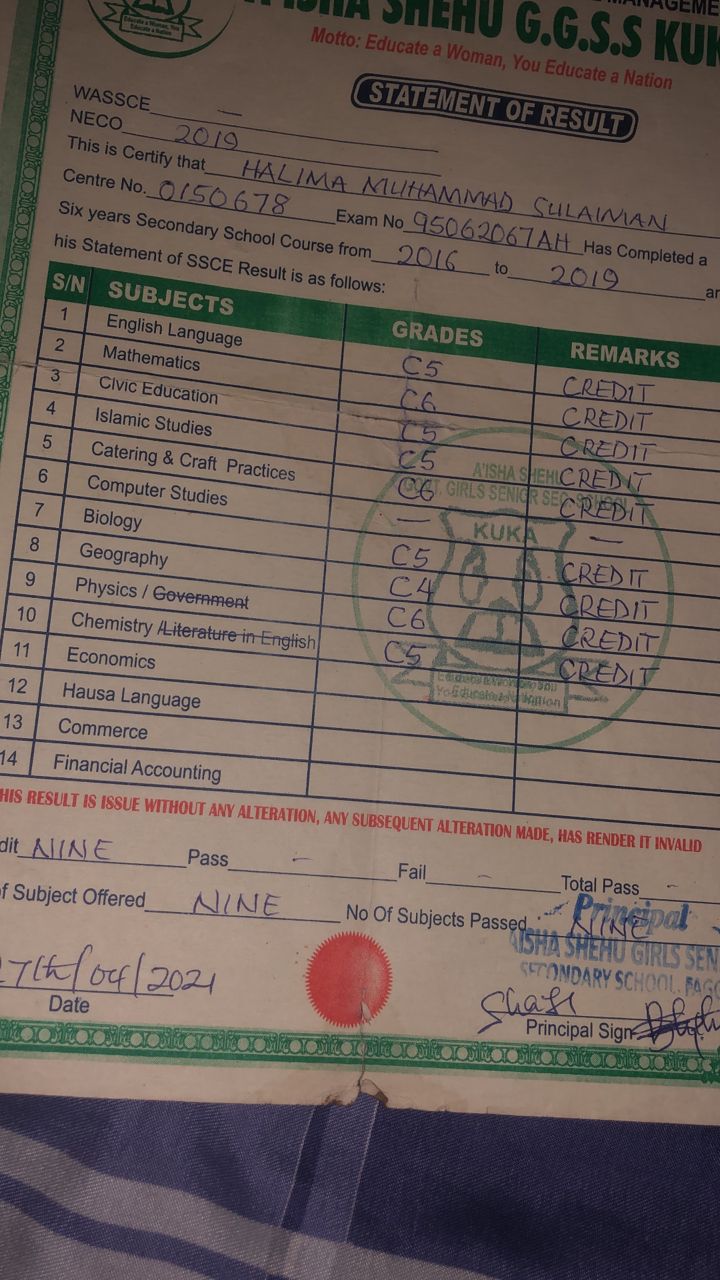 MANAGEME
SHA SHEHU G.G.S.S KUK
Educate a Woman, You
Educate a Nation
Motto: Educate a Woman, You Educate a Nation
STATEMENT OF RESULT
WASSCE —
NECO 2019
This is Certify that HALIMA MUHAMMAD SULAIMAN
Centre No. 0150678 Exam No 95062067AH Has Completed a
Six years Secondary School Course from 2016 to 2019 an
his Statement of SSCE Result is as follows:
S/N SUBJECTS GRADES REMARKS
1 English Language C5 CREDIT
2 Mathematics C6 CREDIT
3 Civic Education C5 CREDIT
4 Islamic Studies C5 CREDIT
5 Catering & Craft Practices C6 CREDIT
6 Computer Studies — —
7 Biology C5 CREDIT
8 Geography C4 CREDIT
9 Physics / Government C6 CREDIT
10 Chemistry /Literature in English C5 CREDIT
11 Economics
12 Hausa Language
13 Commerce
14 Financial Accounting
A'ISHA SHEHU
GOVT. GIRLS SENIOR SEC. SCHOOL
KUKA
HIS RESULT IS ISSUE WITHOUT ANY ALTERATION, ANY SUBSEQUENT ALTERATION MADE, HAS RENDER IT INVALID
dit NINE Pass — Fail — Total Pass —
f Subject Offered NINE No Of Subjects Passed NINE
Principal
AISHA SHEHU GIRLS SEN
SECONDARY SCHOOL, FAG
7th/04/2021
Date
Principal Sign